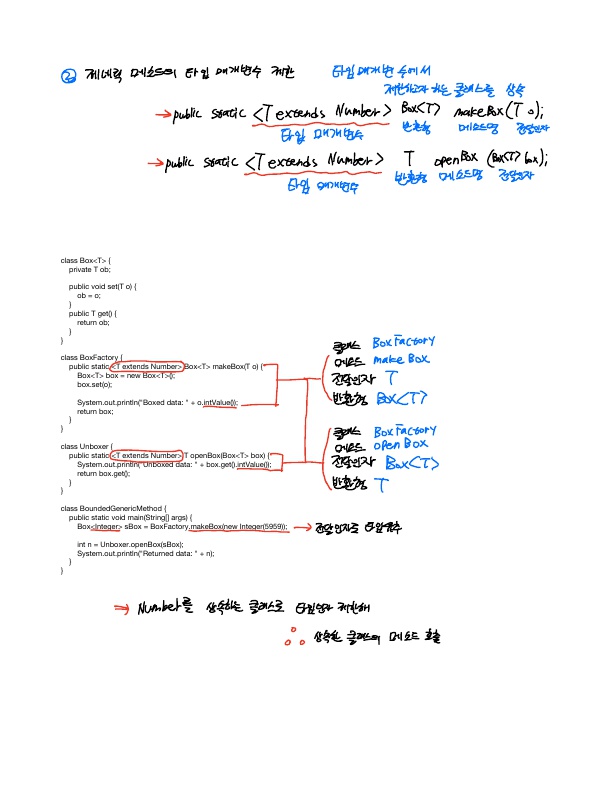 ② 제네릭 메소드의 타입 매개변수 제한
타입매개변수에서
제한하고자 하는 클래스를 상속
→ public static <T extends Number> Box<T> makeBox(T o);
타입 매개변수 반환형 메소드명 전달인자
→ public static <T extends Number> T openBox (Box<T> box);
타입 매개변수 반환형 메소드명 전달인자
class Box<T> {
private T ob;
public void set(T o) {
ob = o;
}
public T get() {
return ob;
}
}
class BoxFactory {
public static <T extends Number> Box<T> makeBox(T o) {
Box<T> box = new Box<T>();
box.set(o);
System.out.println("Boxed data: " + o.intValue());
return box;
}
}
클래스 BoxFactory
메소드 make Box
전달인자 T
반환형 Box<T>
class Unboxer {
public static <T extends Number> T openBox(Box<T> box) {
System.out.println("Unboxed data: " + box.get().intValue());
return box.get();
}
}
클래스 BoxFactory
메소드 open Box
전달인자 Box<T>
반환형 T
class BoundedGenericMethod {
public static void main(String[] args) {
Box<Integer> sBox = BoxFactory.makeBox(new Integer(5959));
→ 전달인자로 타입유추
int n = Unboxer.openBox(sBox);
System.out.println("Returned data: " + n);
}
}
→ Number를 상속하는 클래스로 타입인자 제한해
∴ 상속한 클래스의 메소드 호출